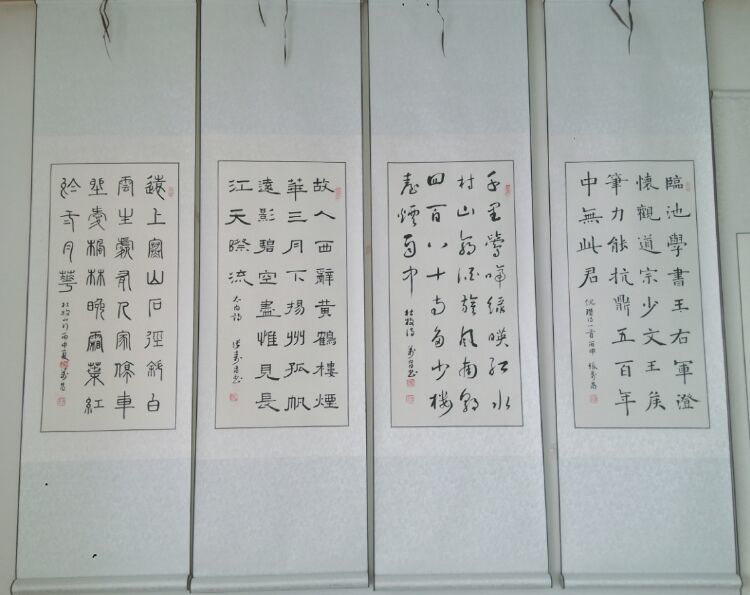 臨池學書王右軍澄
懷觀道宗少文王侯
筆力能抗鼎五百年
中無此君
倪瓚詩一首丙申
千里鶯啼綠暎紅水
村山郭酒旗風南朝
四百八十寺多少樓
臺煙雨中
杜牧詩
故人西辭黃鶴樓煙
華三月下揚州孤帆
遠影碧空盡惟見長
江天際流
太白詩
遠上寒山石徑斜白
雲生處有人家停車
坐愛楓林晚霜葉紅
於二月華
杜牧山行丙申夏